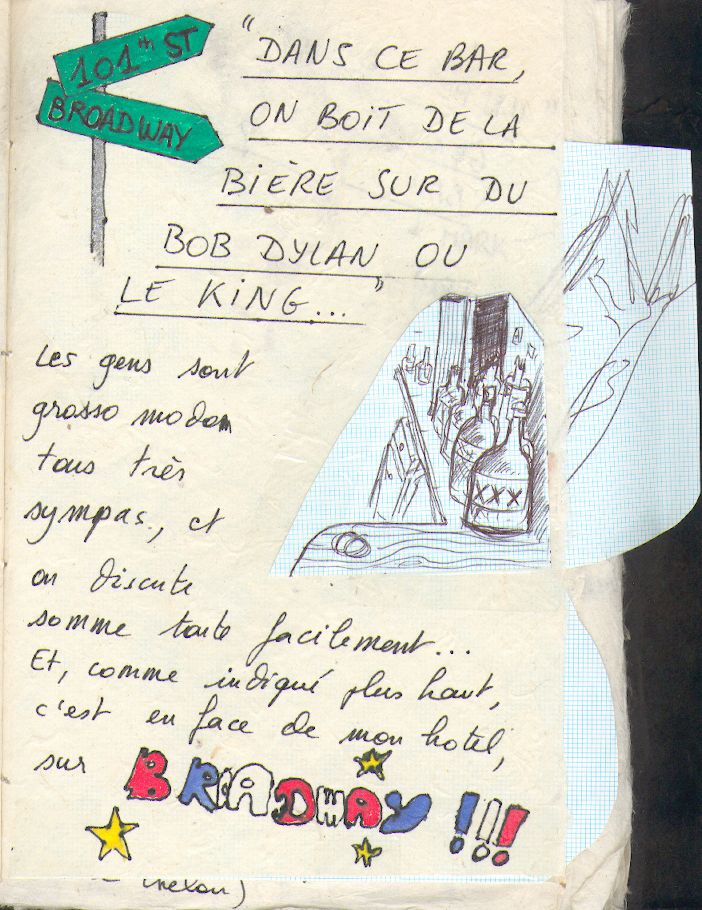 101th ST
BROADWAY
"DANS CE BAR,
ON BOIT DE LA
BIÈRE SUR DU
BOB DYLAN OU
LE KING..."
Les gens sont
grosso modo
tous très
sympas, et
on discute
somme toute facilement...
Et, comme indiqué plus haut,
c'est en face de mon hotel,
sur BROADWAY !!!
XXX